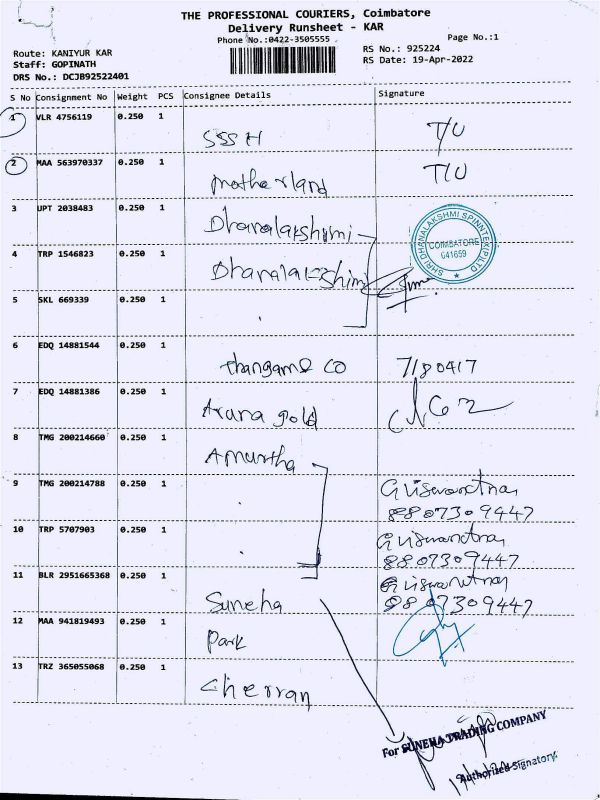 THE PROFESSIONAL COURIERS, Coimbatore
Delivery Runsheet - KAR
Phone No.:0422-3505555
Page No.:1
Route: KANIYUR KAR
Staff: GOPINATH
DRS No.: DCJB92522401
RS No.: 925224
RS Date: 19-Apr-2022
S No Consignment No Weight PCS Consignee Details Signature
1 VLR 4756119 0.250 1
SSSH T/U
2 MAA 563970337 0.250 1
motherland T/U
3 UPT 2038483 0.250 1
Dhanalakshimi
SHRI DHANALAKSHMI SPINNTEX P LTD
COIMBATORE
641659
4 TRP 1546823 0.250 1
Dhanalakshimi
5 SKL 669339 0.250 1
6 EDQ 14881544 0.250 1
thangam & CO 7180417
7 EDQ 14881386 0.250 1
Aruna gold
8 TMG 200214660 0.250 1
Amurtha
9 TMG 200214788 0.250 1
8807309447
10 TRP 5707903 0.250 1
8807309447
11 BLR 2951665368 0.250 1
Suneha 8807309447
12 MAA 941819493 0.250 1
Park
13 TRZ 365055068 0.250 1
Cherran
For SUNEHA TRADING COMPANY
Authorised Signatory